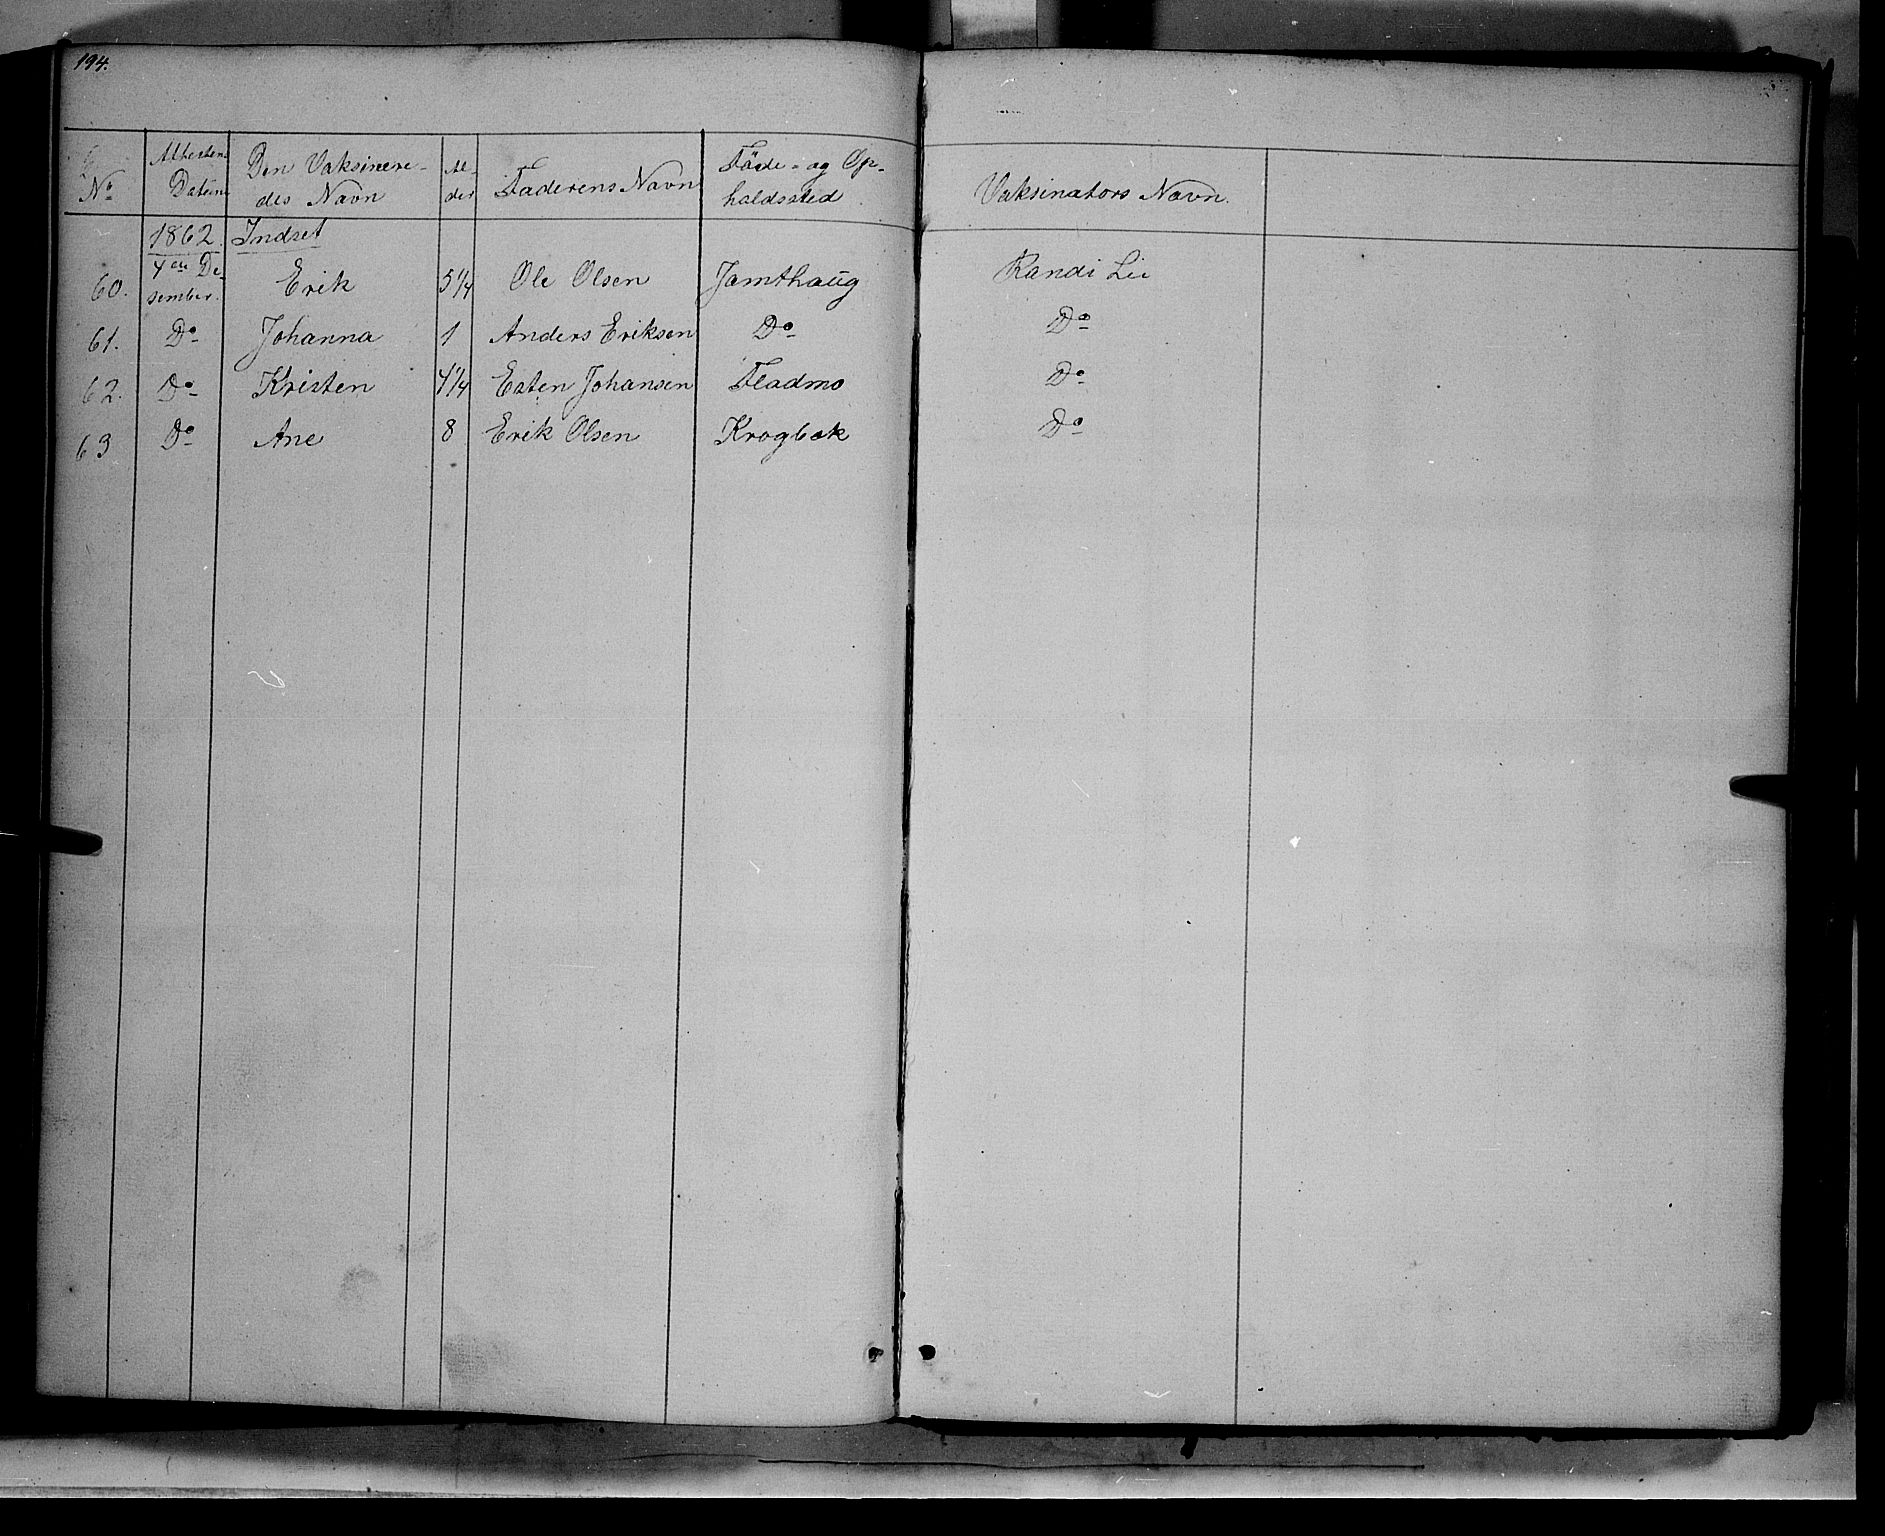 194.
No Attestens Datum Den Vaksinere-des Navn Al-der Faderens Navn Föde- og Op-holdssted Vaksinators Navn.
1862. Indset
60. 4de De-sember. Erik 5 1/4 Ole Olsen Jamthaug Randi Lie
61. Do Johanna 1 Anders Eriksen Do Do
62. Do Kristen 4 1/4 Esten Johansen Fladmo Do
63 Do Ane 8 Erik Olsen Krogbæk Do